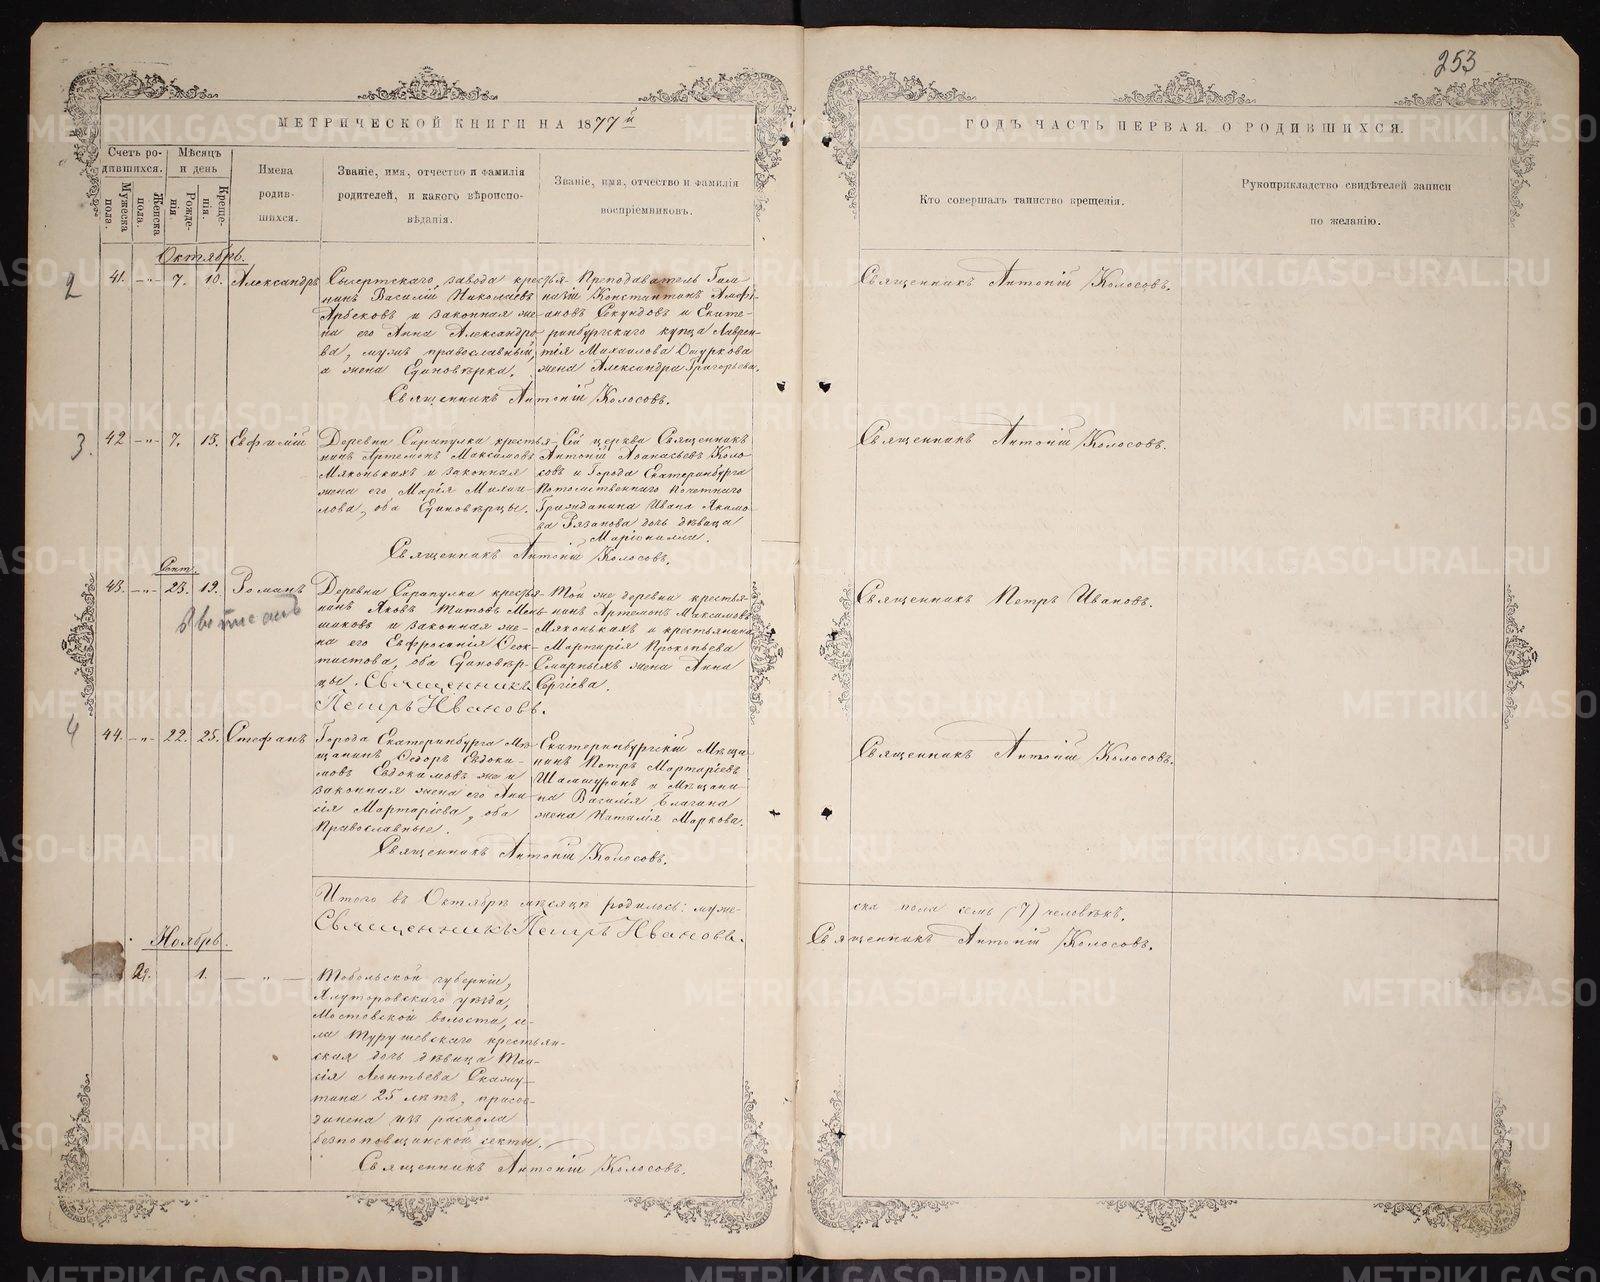 253
МЕТРИЧЕСКОЙ КНИГИ НА 1877й
ГОДЪ ЧАСТЬ ПЕРВАЯ. О РОДИВШИХСЯ.
Счетъ родившихся.
Мужеска пола.
Женска пола.
Мѣсяцъ и день
Рожденія.
Крещенія.
Имена родившихся.
Званіе, имя, отчество и фамилія
родителей, и какого вѣроиспо-
вѣданія.
Званіе, имя, отчество и фамилія
воспріемниковъ.
Кто совершалъ таинство крещенія.
Рукоприкладство свидѣтелей записи
по желанію.
Октябрь.
2
41. -„- 7. 10. Александръ
Сысертскаго завода кресть-
янинъ Василій Николаевъ
Арбековъ и законная же-
на его Анна Александро-
ва, мужъ православный,
а жена Единовѣрка.
Преподаватель Гим-
назіи Константинъ Амфі-
ановъ Секундовъ и Екате-
ринбургскаго купца Лаврен-
тія Михаилова Ошуркова
жена Александра Григорьева.
Священникъ Антоній Колосовъ.
Священникъ Антоній Колосовъ.
3.
42 -„- 7. 13. Евфимій
Деревни Сарапулка кресть-
нинъ Артемонъ Максимовъ
Мяконькихъ и законная
жена его Марія Михаи-
лова, оба Единовѣрцы.
Сей церкви Священникъ
Антоній Аѳанасьевъ Коло-
совъ и Города Екатеринбурга
Потомственнаго Почетнаго
Гражданина Ивана Якимо-
ва Рязанова дочь дѣвица
Маріонилла.
Священникъ Антоній Колосовъ.
Священникъ Антоній Колосовъ.
Сент.
43. -„- 23. 19. Романъ
Деревни Сарапулка кресть-
нинъ Яковъ Титовъ Мень-
шиковъ и законная же-
на его Евфросинія Ѳеок-
тистова, оба Единовѣр-
цы. Священникъ
Петръ Ивановъ.
Той же деревни кресть-
нинъ Артемонъ Максимовъ
Мяконькихъ и крестьянина
Мартирія Прокопьева
Смарныхъ жена Анна
Сергіева.
Священникъ Петръ Ивановъ.
4
44. -„- 22. 25. Стефанъ
Города Екатеринбурга Мѣ-
щанинъ Ѳедоръ Евдоки-
мовъ Евдокимовъ же и
законная жена его Ани-
сія Мартиріева, оба
Православные.
Екатеринбургскій Мѣща-
нинъ Петръ Мартиріевъ
Шамшуринъ и Мѣщани-
на Василія Благина
жена Наталія Маркова.
Священникъ Антоній Колосовъ.
Священникъ Антоній Колосовъ.
Итого въ Октябрѣ мѣсяцѣ родилось: муже-
ска пола семь (7) человѣкъ.
Священникъ Петръ Ивановъ.
Священникъ Антоній Колосовъ.
Ноябрь.
1. — „ —
Тобольской губерніи,
Ялуторовскаго уѣзда,
Мостовской волости, се-
ла Турушевскаго крестьян-
ская дочь дѣвица Таи-
сія Леонтьева
25 лѣтъ, присое-
динена изъ раскола
безпоповщинской секты.
Священникъ Антоній Колосовъ.
METRIKI.GASO-URAL.RU